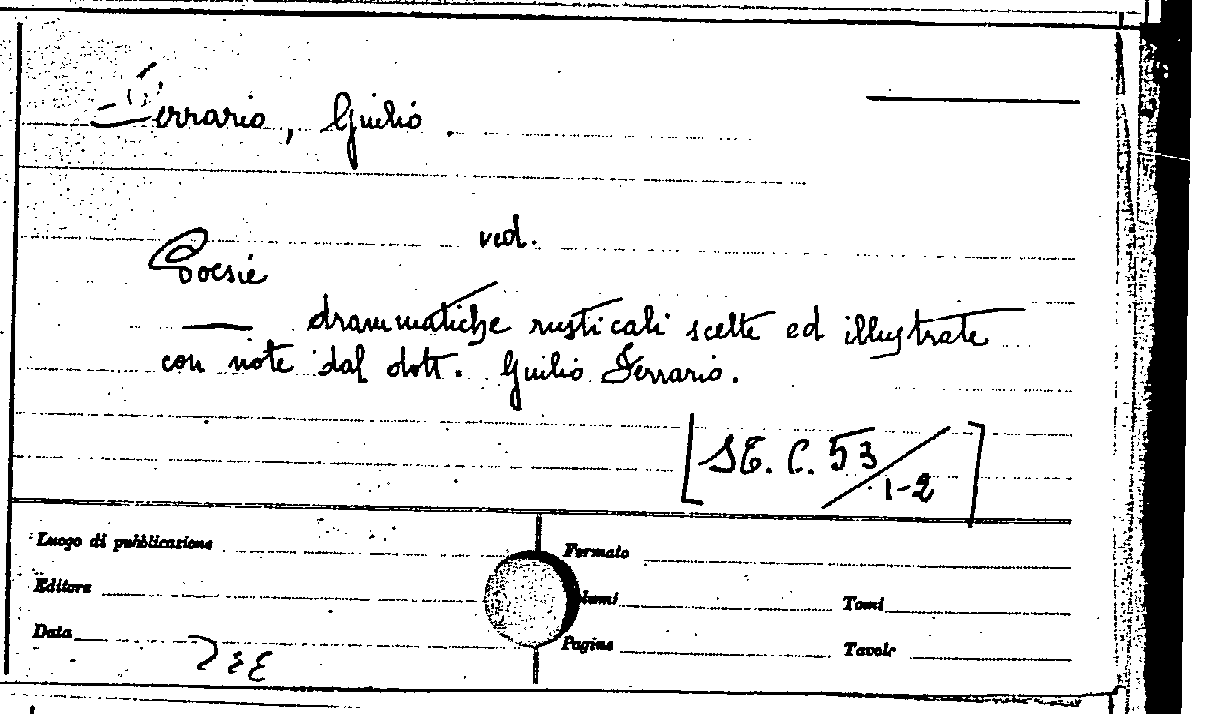 Ferrario, Giulio.
ved.
Poesie
— drammatiche rusticali scelte ed illustrate
con note dal dott. Giulio Ferrario.
[SE. C. 53/1-2]
Luogo di pubblicazione
Formato
Editore
Tomi
Data
Pagine
Tavole